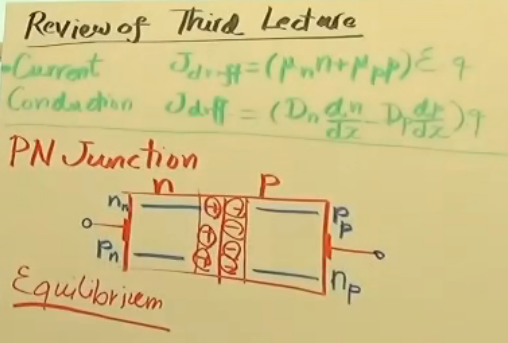 Review of Third Lecture
Current J drift = (μn n + μp p) ε q
Conduction J diff = (Dn dn/dx - Dp dp/dx) q
PN Junction
n P
nn + - Pp
+ -
Pn + - np
-
Equilibrium